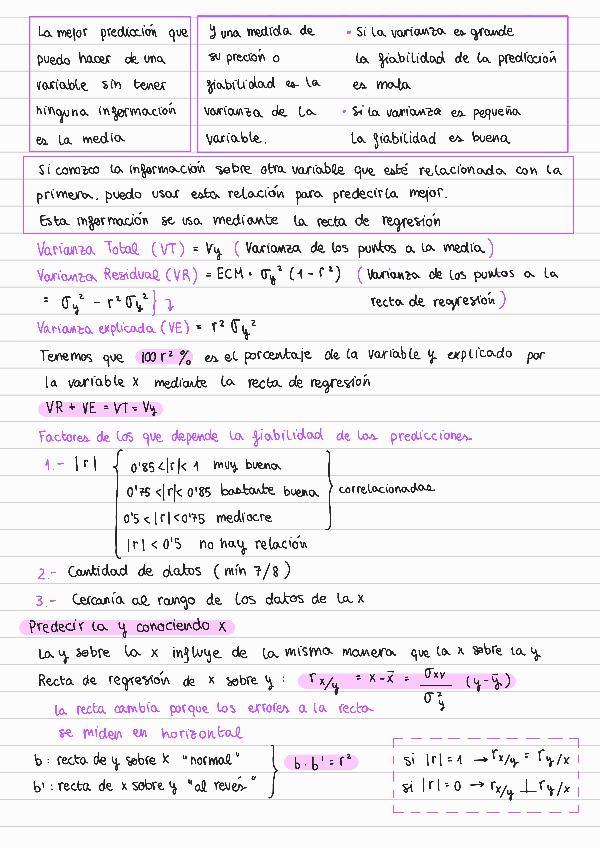 La mejor predicción que
puedo hacer de una
variable sin tener
ninguna información
es la media
Y una medida de
su preción o
fiabilidad es la
varianza de la
variable.
• Si la varianza es grande
la fiabilidad de la predicción
es mala
• Si la varianza es pequeña
la fiabilidad es buena
Si conozco la información sobre otra variable que esté relacionada con la
primera, puedo usar esta relación para predecirla mejor.
Esta información se usa mediante la recta de regresión
Varianza Total (VT) = Vy (Varianza de los puntos a la media)
Varianza Residual (VR) = ECM = σy² (1 - r²) (Varianza de los puntos a la
= σy² - r² σy² } recta de regresión)
Varianza explicada (VE) = r² σy²
Tenemos que 100 r² % es el porcentaje de la variable y explicado por
la variable x mediante la recta de regresión
VR + VE = VT = Vy
Factores de los que depende la fiabilidad de las predicciones
1.- |r| { 0'85 < |r| < 1 muy buena
0'75 < |r| < 0'85 bastante buena } correlacionadas
0'5 < |r| < 0'75 mediocre
|r| < 0'5 no hay relación
2.- Cantidad de datos (min 7/8)
3.- Cercanía al rango de los datos de la x
Predecir la y conociendo x
La y sobre la x influye de la misma manera que la x sobre la y
Recta de regresión de x sobre y : r x/y = x - x̄ = σxy / σ²y (y - ȳ)
la recta cambia porque los errores a la recta
se miden en horizontal
b : recta de y sobre x "normal"
b' : recta de x sobre y "al revés"
} b · b' = r²
si |r| = 1 → r x/y = r y/x
si |r| = 0 → r x/y ⊥ r y/x